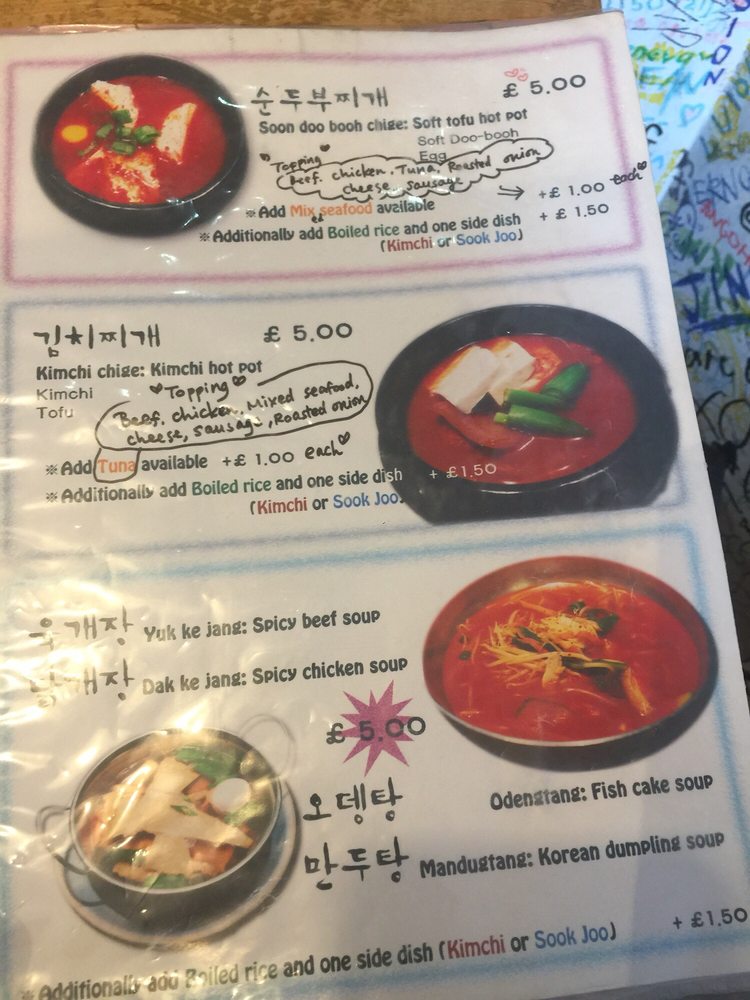 순두부찌개
£ 5.00
Soon doo booh chige: Soft tofu hot pot
Soft Doo-booh
Egg
Topping
Beef, chicken, Tuna, Roasted onion
cheese, sausage
⇒ +£ 1.00 each
※ Add Mixed seafood available + £ 1.50
※ Additionally add Boiled rice and one side dish
(Kimchi or Sook Joo)
김치찌개 £ 5.00
Kimchi chige: Kimchi hot pot
Kimchi
Tofu
Topping
Beef, chicken, Mixed seafood,
cheese, sausage, Roasted onion
※ Add Tuna available +£ 1.00 each
※ Additionally add Boiled rice and one side dish + £1.50
(Kimchi or Sook Joo)
Yuk ke jang: Spicy beef soup
Dak ke jang: Spicy chicken soup
£ 5.00
오뎅탕 Odengtang: Fish cake soup
만두탕 Mandugtang: Korean dumpling soup
※ Additionally add Boiled rice and one side dish (Kimchi or Sook Joo) + £1.50